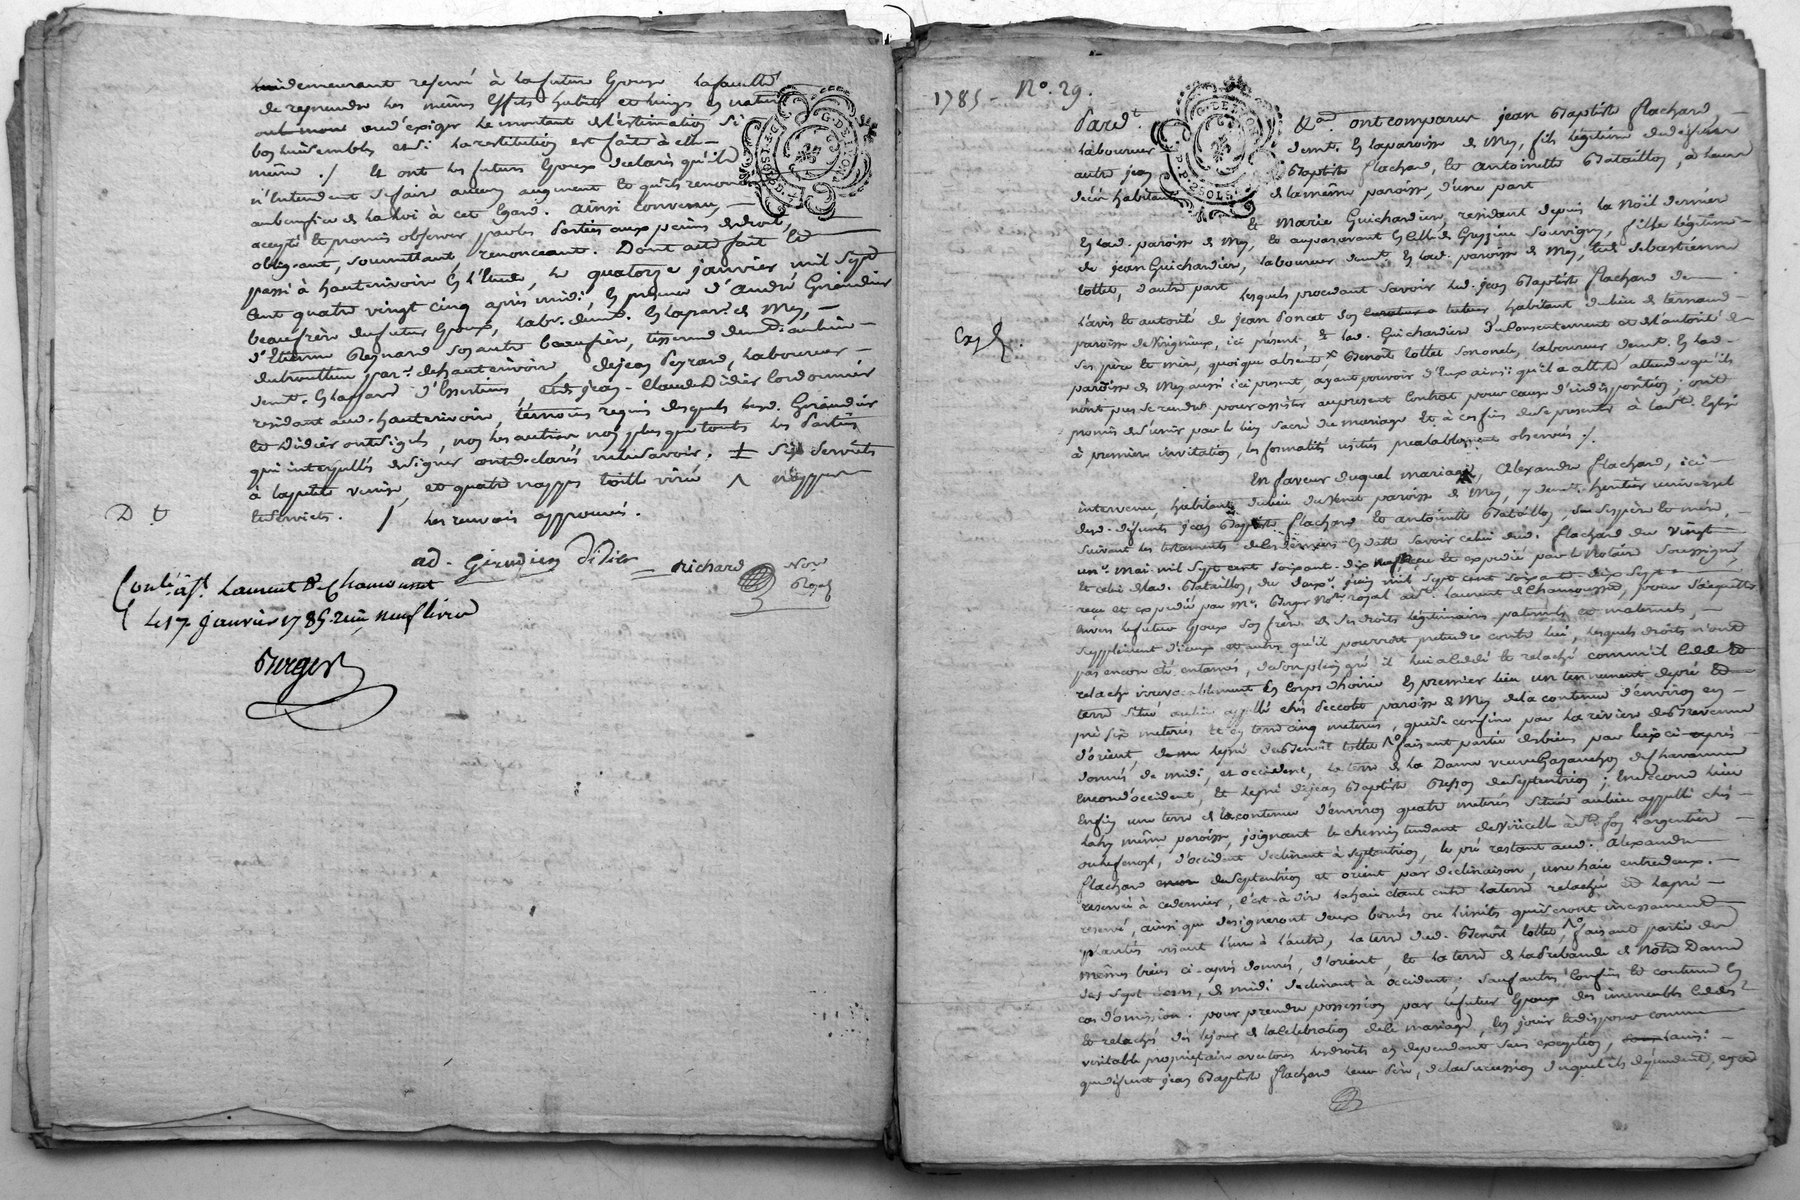 demeurant reservé à la future Epouse la faculté
de reprendre les mêmes effets habits et linges en nature
ou d'exiger le montant de l'estimation si
bon lui semble si la restitution est faite à elle
même ./. et ont les futurs Epoux declaré qu'ils
n'entendent se faire aucun augment et qu'ils renoncent
au benefice de la loi à cet Egard. ainsi convenu,
accepté et promis observer par les Parties aux peines de droit,
obligeant, soumettant, renonceant. Dont acte fait et
passé à hauterivoire en l'Etude, le quatorze janvier mil sept
cent quatre vingt cinq après midi, en présence d'André Girandier
beaufrère du futur Epoux, labr. demt. en la par. de Mey,
d'Etienne Regnard son autre beaufrère, tisserand demt. au lieu
par. de hauterivoire, de jean Peyrard, laboureur
demt. et de jean-Claude Didier Cordonnier
residant aud. hauterivoire, témoins requis desquels lesd. Girandier
et Didier ont signés, non les autres non plus que toutes les Parties
qui interpellés de signer ont declarés ne le savoir. ± six serviettes
à la petite venise, et quatre nappes toille ^ nappes
et serviets. / les renvois approuvés.
D t
ad. Girandier Didier richard Nore
Royal
Conlé. à St. Laurent de Chamousset
Le 17 janvier 1785. reçu neuf livres
Berger
1785 - No. 29.
G. DE LYON
Pardt. ont comparus jean Baptiste flachard
laboureur demt. en la paroisse de Mey, fils légitime de defunt
autre jean Baptiste flachard, et Antoinette Bataillon, à leur
décès habitants de la même paroisse, d'une part
et Marie Guichardier, residant depuis la Noël derniere
en lad. paroisse de Mey, et auparavant en celle de Grezieu Souvigny, fille légitime
de jean Guichardier, laboureur demt. en lad. paroisse de Mey, et de Sebastienne
lottet, d'autre part lesquels procedant savoir led. jean Baptiste flachard de
l'avis et autorité de jean Poncet son curateur habitant du lieu de ternand
paroisse de Virigneux, ici présent, et lad. Guichardier du consentement et de l'autorité de
ses père et mère, quoique absents, Benoît lottet son oncle, laboureur demt. en lad.
paroisse de Mey aussi ici present, ayant pouvoir d'eux ainsi qu'il a attesté attendu qu'ils
n'ont peu se rendre pour assister au present Contrat pour cause d'indisposition; ont
promis de s'unir par le lien sacré du mariage et à ces fins de se presenter à la Ste. Eglise
à premiere invitation, les formalités usités prealablement observés /.
Exp.
En faveur duquel mariage, Alexandre flachard, ici
intervenu, habitant du lieu du paroisse de Mey, y demt. heritier universel
desd. defunts jean Baptiste flachard et antoinette Bataillon, ses père et mère,
suivant les testaments de ces derniers en datte savoir celui dud. flachard du vingt
un. mai mil sept cent soixant-dix reçu et expedié par le Notaire soussigné,
et celui de lad. Bataillon, du juin mil sept cent soixante-dix sept
reçu et expedié par Me. Berger Nore. royal à St. Laurent de Chamousset, pour s'acquitter
envers le futur Epoux son frère de ses droits légitimaires paternels et maternels,
supplément d'iceux et autres qu'il pourroit pretendre contre lui, lesquels droits n'ont
pas encore été entamés, de son plein gré il lui a cedé et relaché comme il cede et
relache irrevocablement En corps d'hoirie En premier lieu un tennement de pré et
terre situé au lieu appellé chés paroisse de Mey de la contenue d'environ en
pré six meterées et en terre cinq meterées, qui se confine par la riviere de
d'orient, le pré de Benoît lottet faisant partie des biens par lui ci-après
donnés de midi, et occident, la terre de la Dame veuve des
encore d'occident, et le pré de jean Baptiste Besson de septentrion; En second lieu
Enfin une terre de la contenue d'environ quatre meterées située au lieu appellé chés
lad. même paroisse, joignant le chemin tendant de Viricelle à Ste. foy l'argentiere
d'occident declinant à septentrion, le pré restant aud. Alexandre
flachard de septentrion et orient par declinaison, une haie entredeux.
reservée à ce dernier, c'est-à-dire la haie étant entre la terre relachée et le pré
reservé, ainsi que designeront deux bornes ou limites qui seront incessamment
plantés visant l'une à l'autre, la terre dud. Benoît lottet, faisant partie des
mêmes biens ci-après donnés, d'orient, et la terre de la Prebande de Notre Dame
des sept de midi declinant à occident; sauf autres Confins et contenue en
cas d'omission. pour prendre possession par le futur Epoux des immeubles cedés
et relachés dès le jour de la celebration de le mariage, en jouir et disposer comme
veritable proprietaire avec tous les droits en dependant sans exception, ainsi
que defunt jean Baptiste flachard leur Père, de la succession duquel ils dependent, en